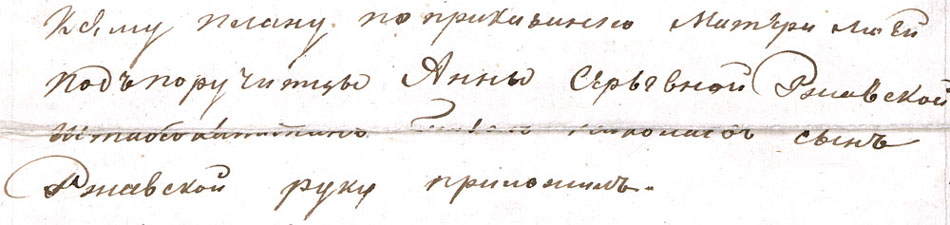 К сему плану по приказанию Матери моей
Подъпоручитцы Анны Серьгѣвной Ржавской
Штабскапитанъ николаевъ сынъ
Ржавской руку приложилъ.